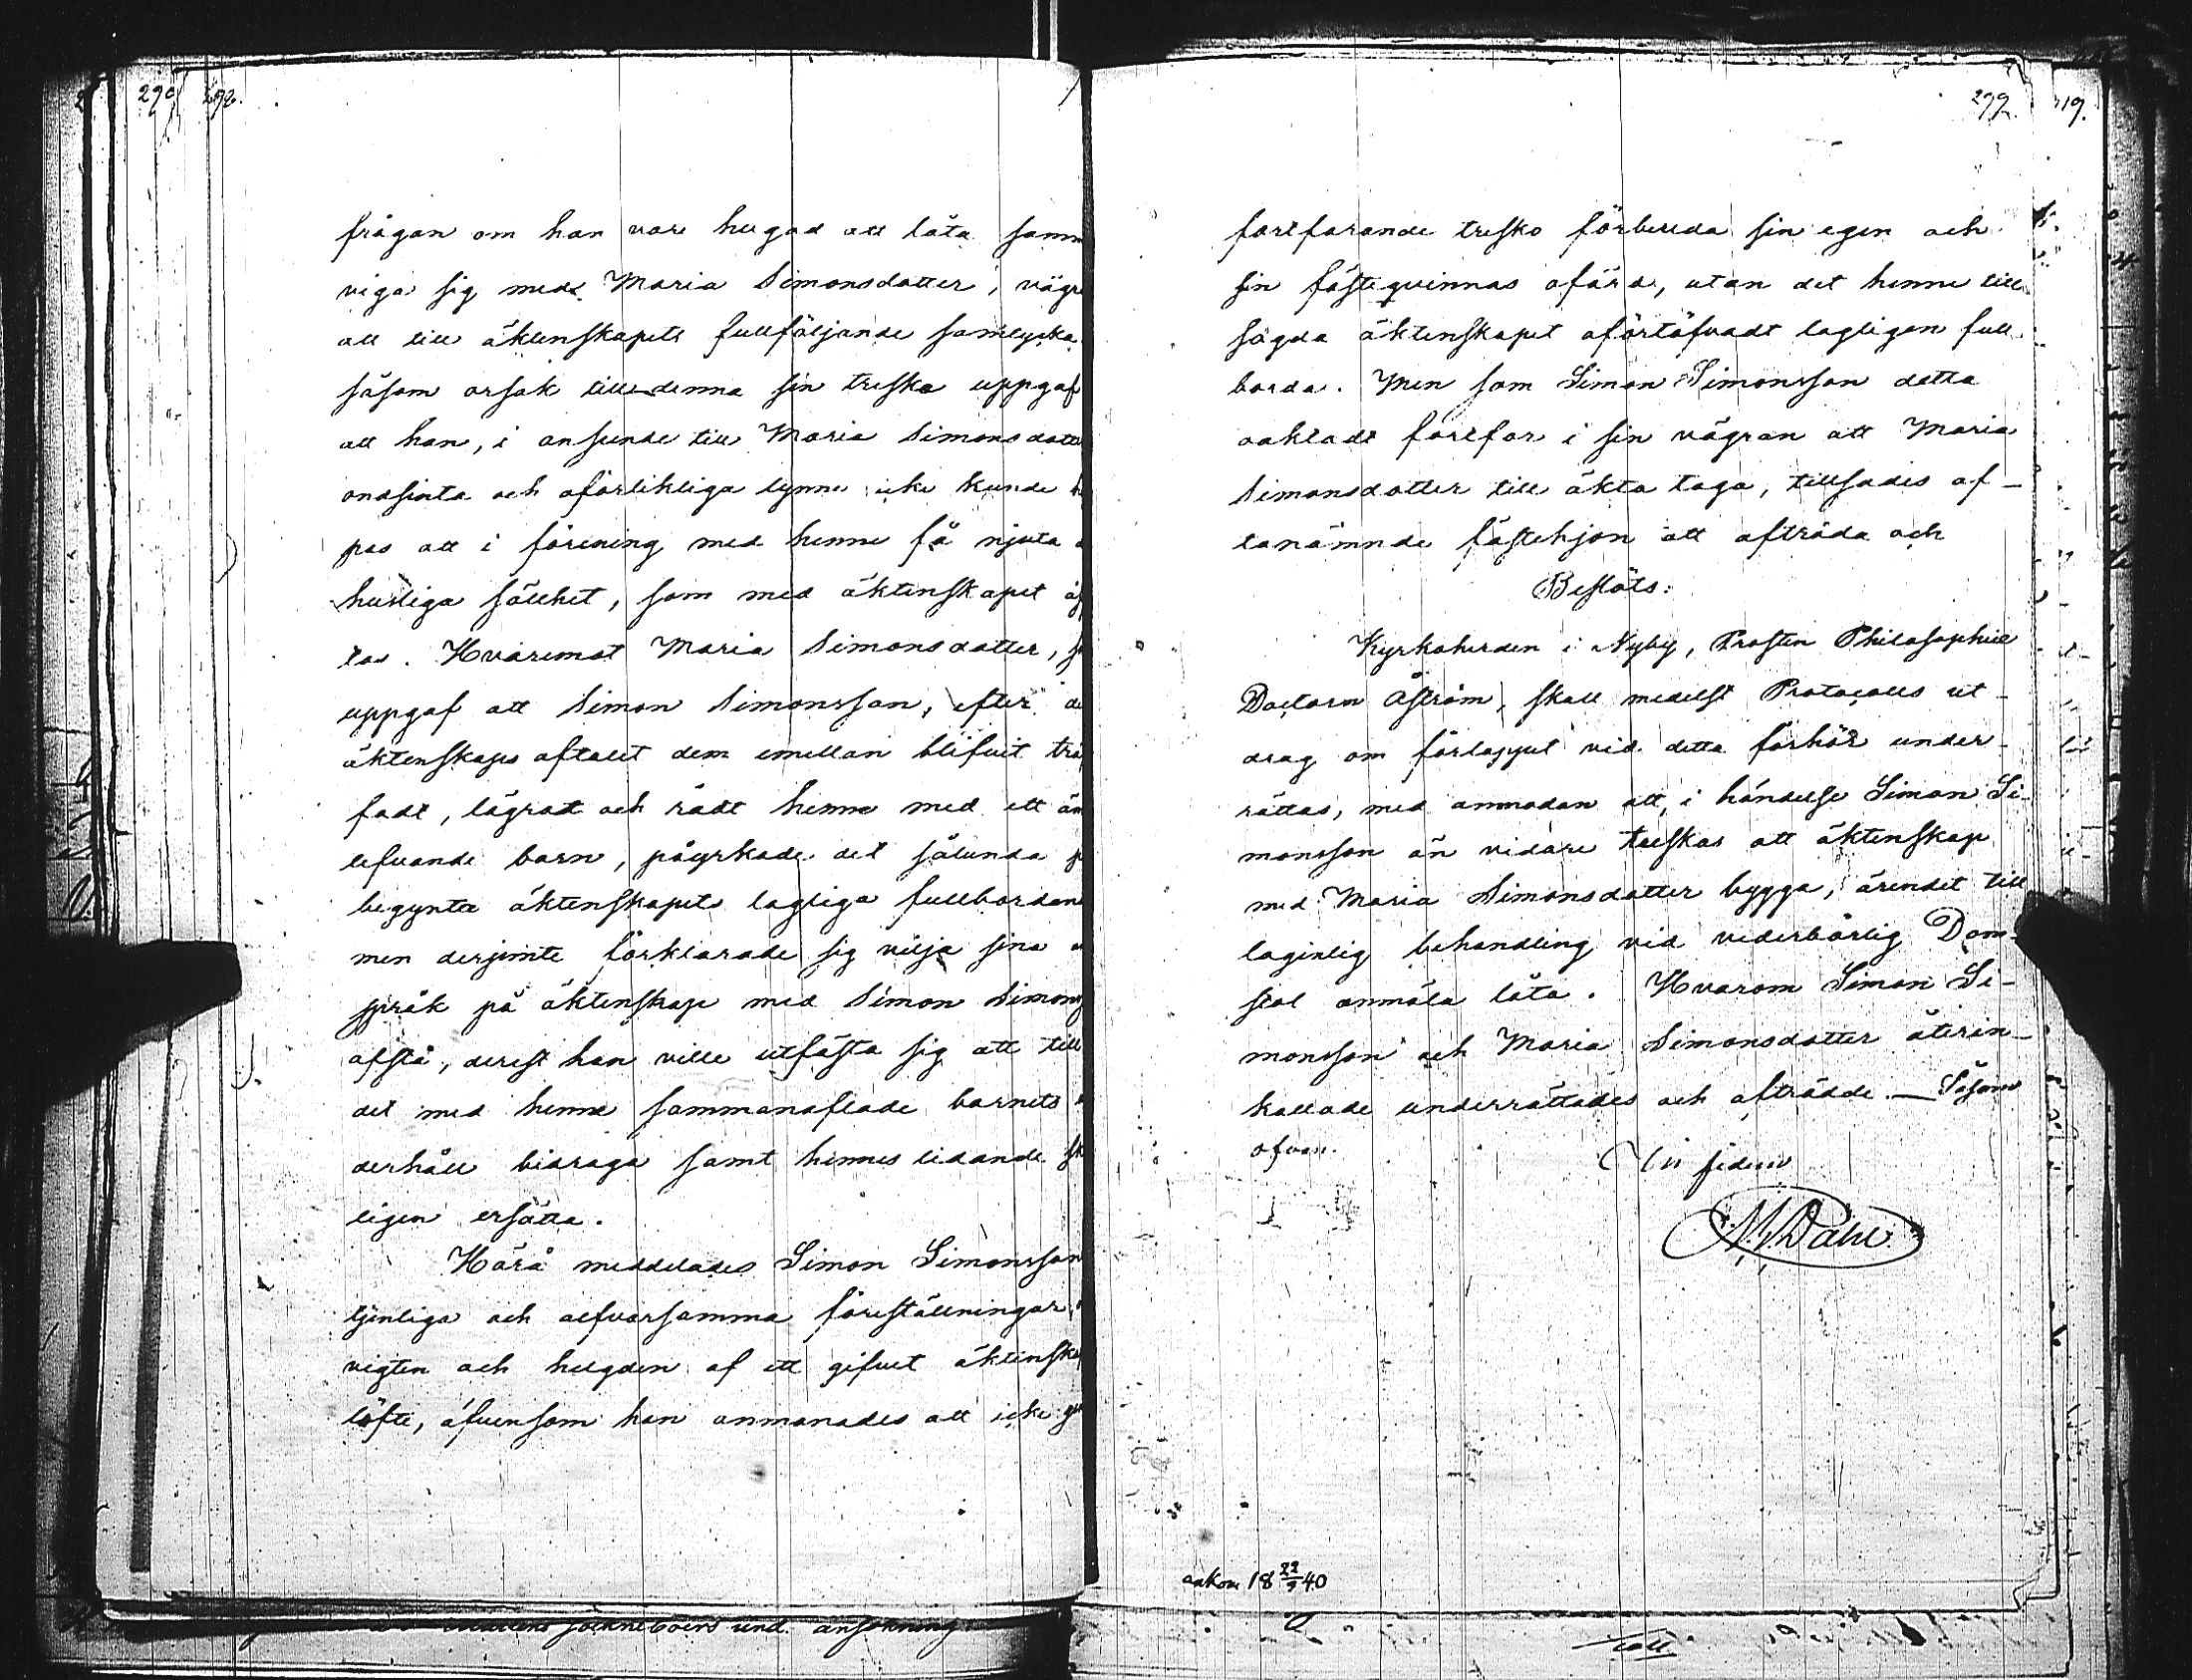 290 292.
frågan om han vore hugad att låta samm
viga sig med Maria Simonsdotter, vägra
att till äktenskapets fullföljande samtycka
såsom orsak till denna sin tresko uppgaf
att han, i anseende till Maria Simonsdotte
ondsinta och oförlikliga lynne icke kunde
pas att i förening med henne få njuta
husliga sällhet, som med äktenskapet åf
tas. Hväremot Maria Simonsdotter,
uppgaf att Simon Simonsson, efter de
äktenskaps aftalet dem emellan blifvit träf
fadt, lägrat och rådt henne med ett än
lefvande barn, påyrkade det sålunda
begynta äktenskapets lagliga fullbordan
men derjemte förklarade sig vilja sina
språk på äktenskap med Simon Simons
afstå, derest han ville utfästa sig att till
det med henne sammanaflade barnets
derhåll bidraga samt hennes lidande
ligen ersätta.
Härå meddelades Simon Simonsson
tjenliga och alfvarsamma föreställningar
vigten och helgden af ett gifvet äktensk
löfte, äfvensom han anmanades att icke
299. 219.
fortfarande tresko förbereda sin egen och
sin fästeqvinnas ofärd, utan det henne till
sagda äktenskapet oförtöfvadt lagligen full
borda. Men som Simon Simonsson detta
oaktadt fortfor i sin vägran att Maria
Simonsdotter till äkta taga, tillsades of-
vanämnde fästehjon att afträda och
Beslöts:
Kyrkoherden i Nyby, Prosten Philosophiæ
Doctorn Åström, skall medelst Protocolls ut-
drag om förloppet vid detta förhör under-
rättas, med anmodan att, i händelse Simon Si-
monsson än vidare treskas att äktenskap
med Maria Simonsdotter bygga, ärendet till
lagenlig behandling vid vederbörlig Dom-
stol anmäla låta. Hvarom Simon Si-
monsson och Maria Simonsdotter återin-
kallade underrättades och afträdde. — Såsom
ofvan.
In fidem
ankom 18 22/9 40
sockneboers und. ansökning